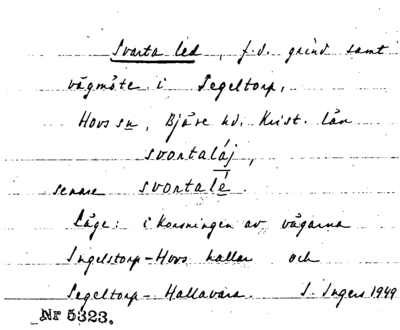 Svarta led, f.d. grind samt
vägmöte i Segeltorp,
Hovs sn, Bjäre hd. Krist. län
svortalaj,
senare svortalé.
Läge: i korsningen av vägarna
Ingelstorp-Hovs hallar och
Segeltorp-Hallavara. S. Ingers 1949
Nr 5323.